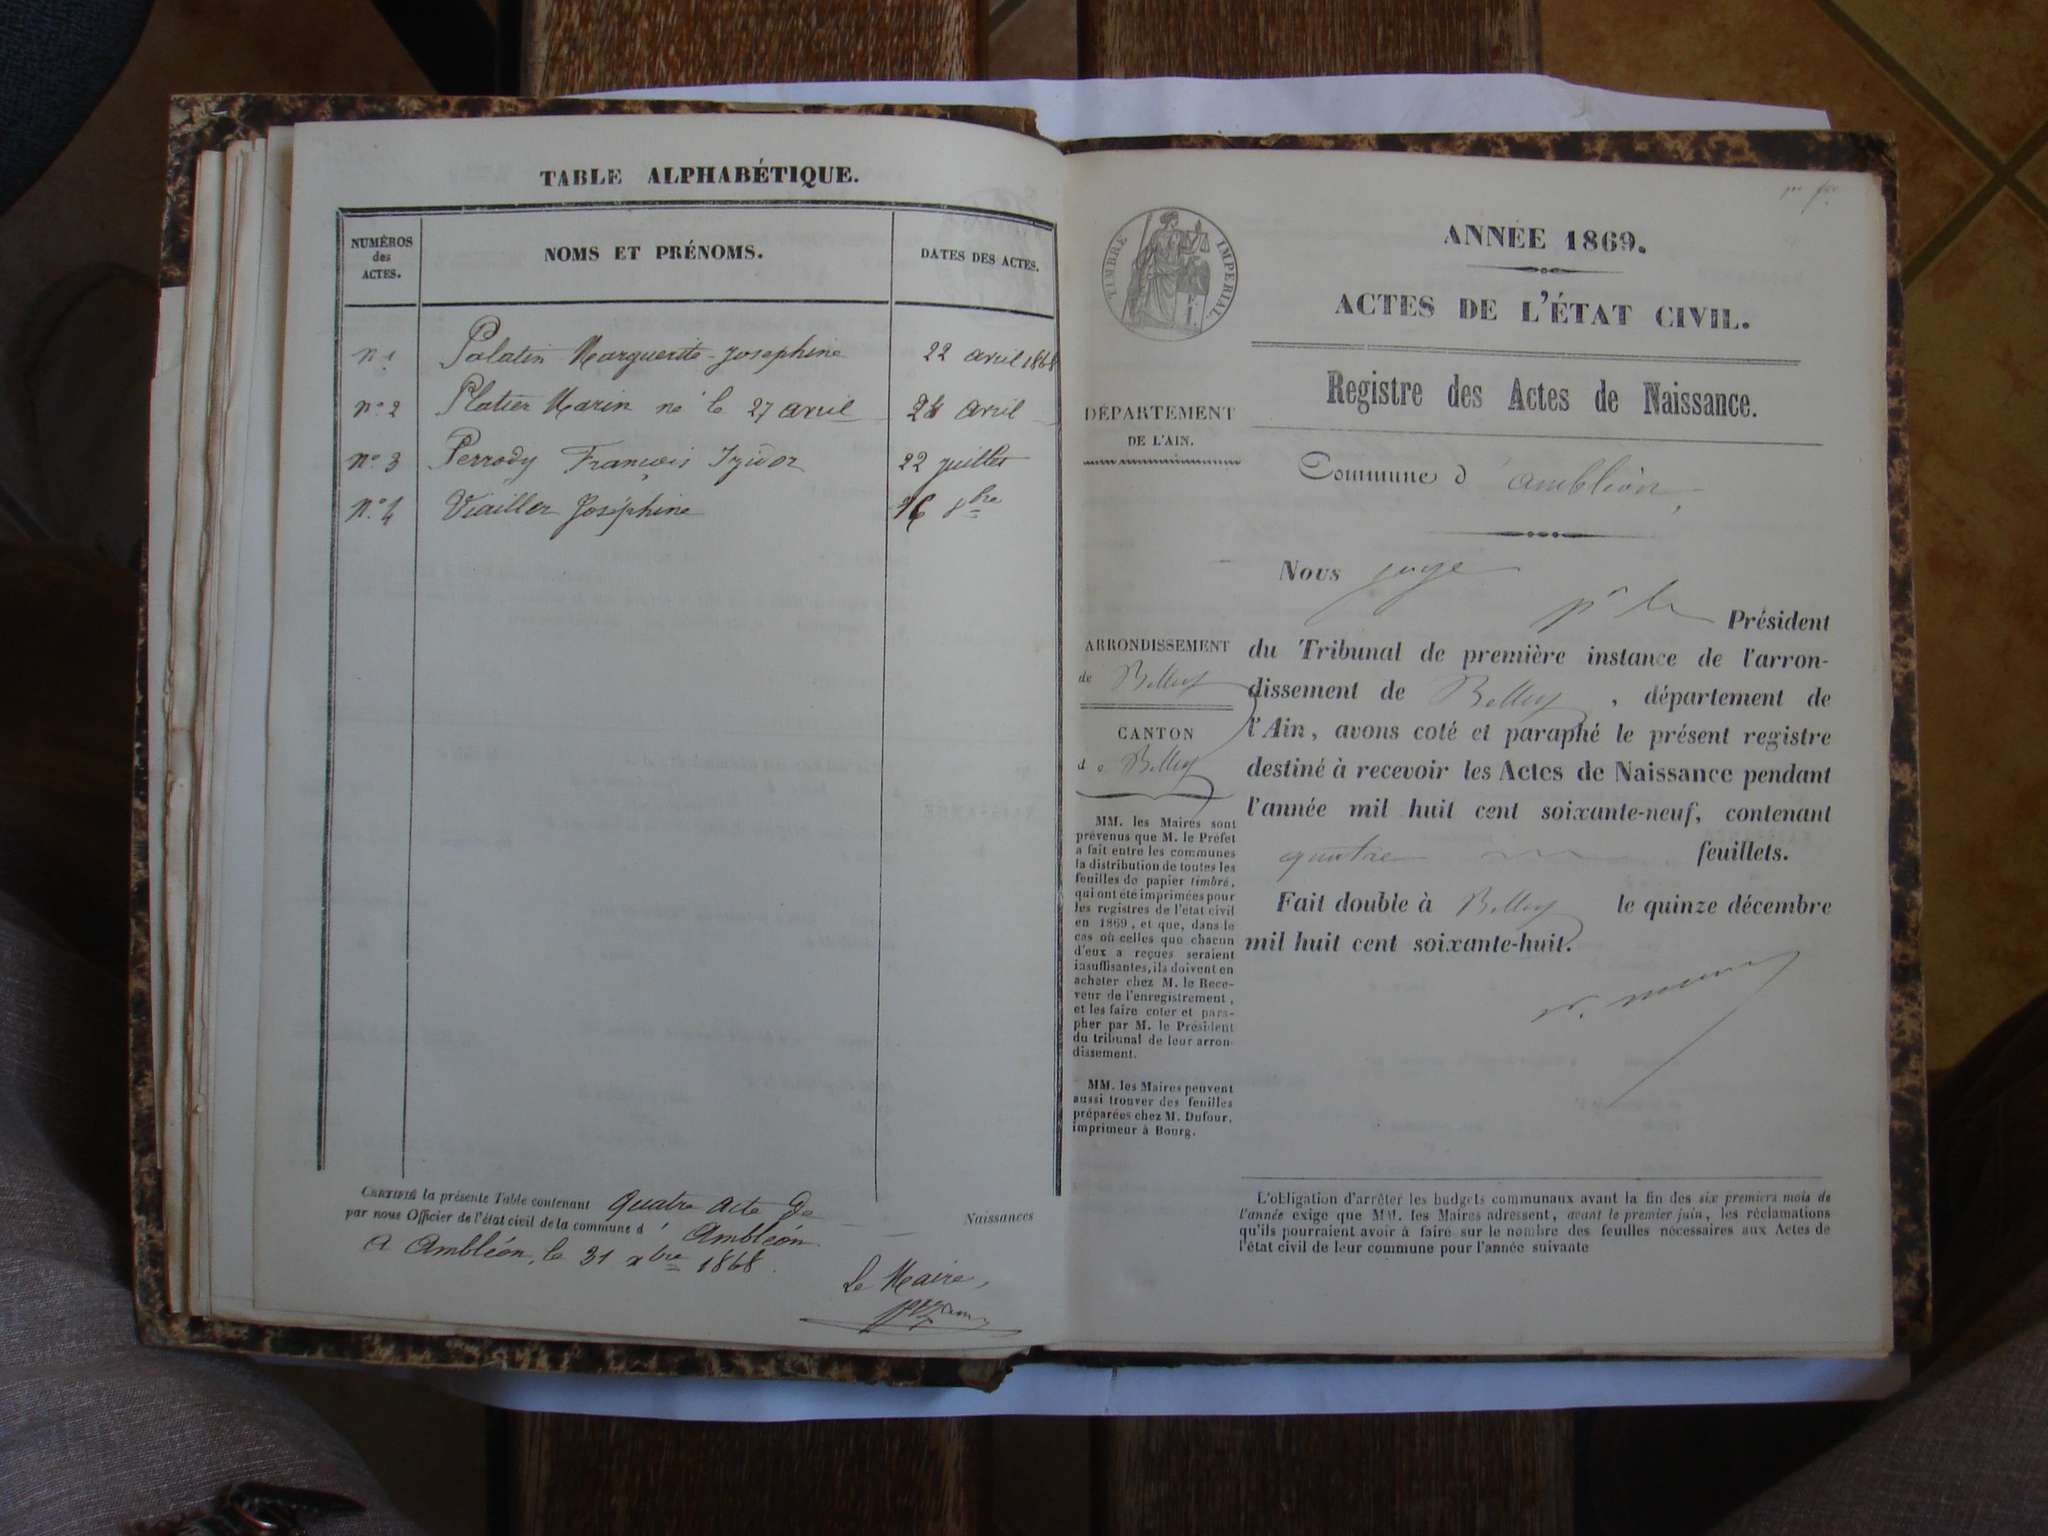 TABLE ALPHABÉTIQUE.
NUMÉROS des ACTES.
NOMS ET PRÉNOMS.
DATES DES ACTES.
n° 1 Palatin Marguerite-Josephine 22 avril 1868
n° 2 Platier Marin né le 27 avril 28 avril
n° 3 Perrody François Izidor 22 juillet
n° 4 Viailler Joséphine 16 8bre
CERTIFIÉ la présente Table contenant quatre acte de Naissances
par nous Officier de l'état civil de la commune d' Ambléon
A Ambléon, le 31 xbre 1868.
Le Maire,
TIMBRE IMPERIAL
DÉPARTEMENT
DE L'AIN.
ARRONDISSEMENT
de Belley
CANTON
de Belley
MM. les Maires sont
prévenus que M. le Préfet
a fait entre les communes
la distribution de toutes les
feuilles de papier timbré,
qui ont été imprimées pour
les registres de l'état civil
en 1869, et que, dans le
cas où celles que chacun
d'eux a reçues seraient
insuffisantes, ils doivent en
acheter chez M. le Rece-
veur de l'enregistrement,
et les faire coter et para-
pher par M. le Président
du tribunal de leur arron-
dissement.
MM. les Maires peuvent
aussi trouver des feuilles
préparées chez M. Dufour,
imprimeur à Bourg.
ANNÉE 1869.
ACTES DE L'ÉTAT CIVIL.
Registre des Actes de Naissance.
Commune d' ambléon
Nous juge
pr le Président
du Tribunal de première instance de l'arron-
dissement de Belley, département de
l'Ain, avons coté et paraphé le présent registre
destiné à recevoir les Actes de Naissance pendant
l'année mil huit cent soixante-neuf, contenant
quatre feuillets.
Fait double à Belley le quinze décembre
mil huit cent soixante-huit.
L'obligation d'arrêter les budgets communaux avant la fin des six premiers mois de
l'année exige que MM. les Maires adressent, avant le premier juin, les réclamations
qu'ils pourraient avoir à faire sur le nombre des feuilles nécessaires aux Actes de
l'état civil de leur commune pour l'année suivante